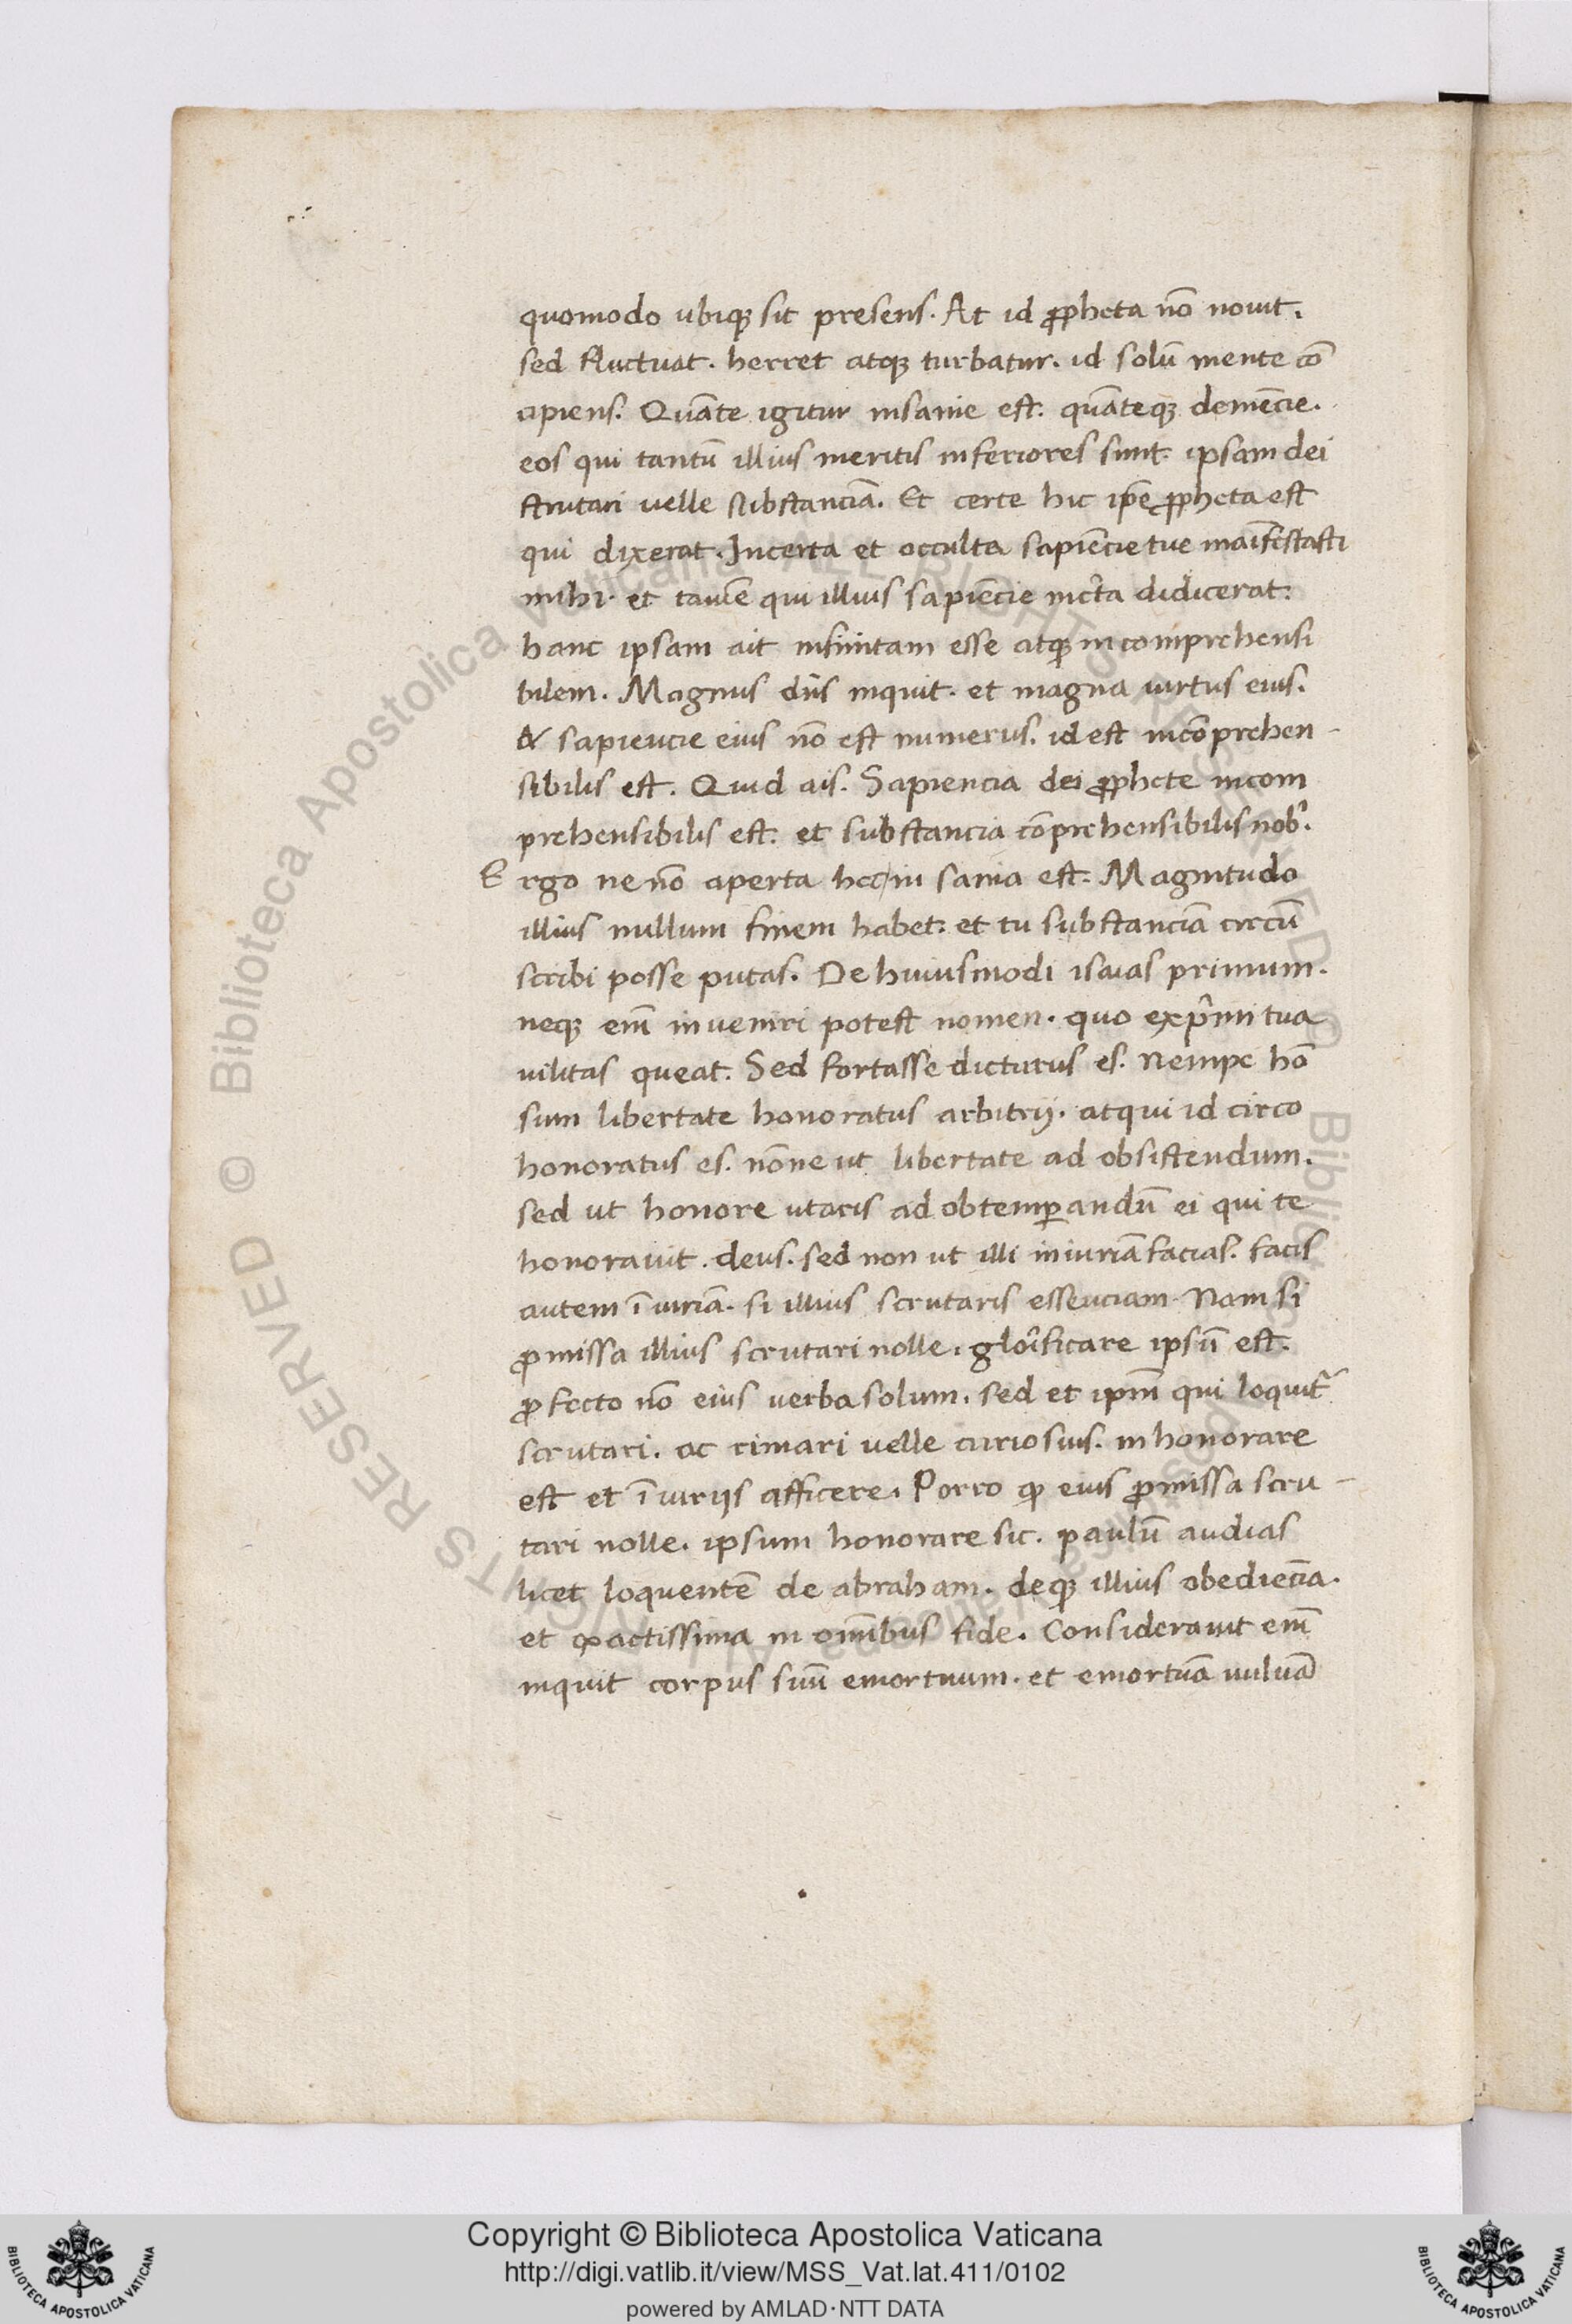 quomodo ubiqꝫ sit presens. At id ꝓpheta nõ nouit.
sed fluctuat. herret atqꝫ turbatur. id solũ mente cõ
cipiens. Quãte igitur insanie est. quãteqꝫ demẽcie.
eos qui tantũ illius meritis inferiores sunt. ipsam dei
scrutari uelle substanciã. Et certe hic ip̃e ꝓpheta est
qui dixerat. Incerta et occulta sapiẽcie tue maĩfestasti
mihi. et tamẽ qui illius sapiẽcie incẽta didicerat.
hanc ipsam ait infinitam esse atqꝫ incomprehensi
bilem. Magnus dñs inquit. et magna uirtus eius.
& sapiencie eius nõ est numerus. id est incõprehen-
sibilis est. Quid ais. Sapiencia dei ꝓphete incom
prehensibilis est. et substancia cõprehensibilis nob̃.
Ergo ne nõ aperta hec in sania est. Magnitudo
illius nullum finem habet. et tu substanciã circũ
scribi posse putas. De huiusmodi isaias primum.
neqꝫ em̃ inueniri potest nomen. quo exp̃mi tua
uilitas queat. Sed fortasse dicturus es. Nempe hõ
sum libertate honoratus arbitrij. atqui id circo
honoratus es. nõne ut libertate ad obsistendum.
sed ut honore utaris ad obtemꝑandũ ei qui te
honorauit. deus. sed non ut illi iniuriã facias. facis
autem ĩiuriã. si illius scrutaris essenciam. Nam si
ꝓmissa illius scrutari nolle. glori̊ficare ipsũ est.
ꝓfecto nõ eius uerba solum. sed et ipm̃ qui loquit᷑
scrutari. ac rimari uelle curiosius. inhonorare
est et ĩiurijs afficere. Porro ꝙ eius ꝓmissa scru-
tari nolle. ipsum honorare sic. paulũ audias
licet loquentẽ de abraham. deqꝫ illius obediẽcia.
et exactissima in om̃ibus fide. Considerauit em̃
inquit corpus suũ emortuum. et emortuã uuluã
Copyright © Biblioteca Apostolica Vaticana
http://digi.vatlib.it/view/MSS_Vat.lat.411/0102
powered by AMLAD·NTT DATA